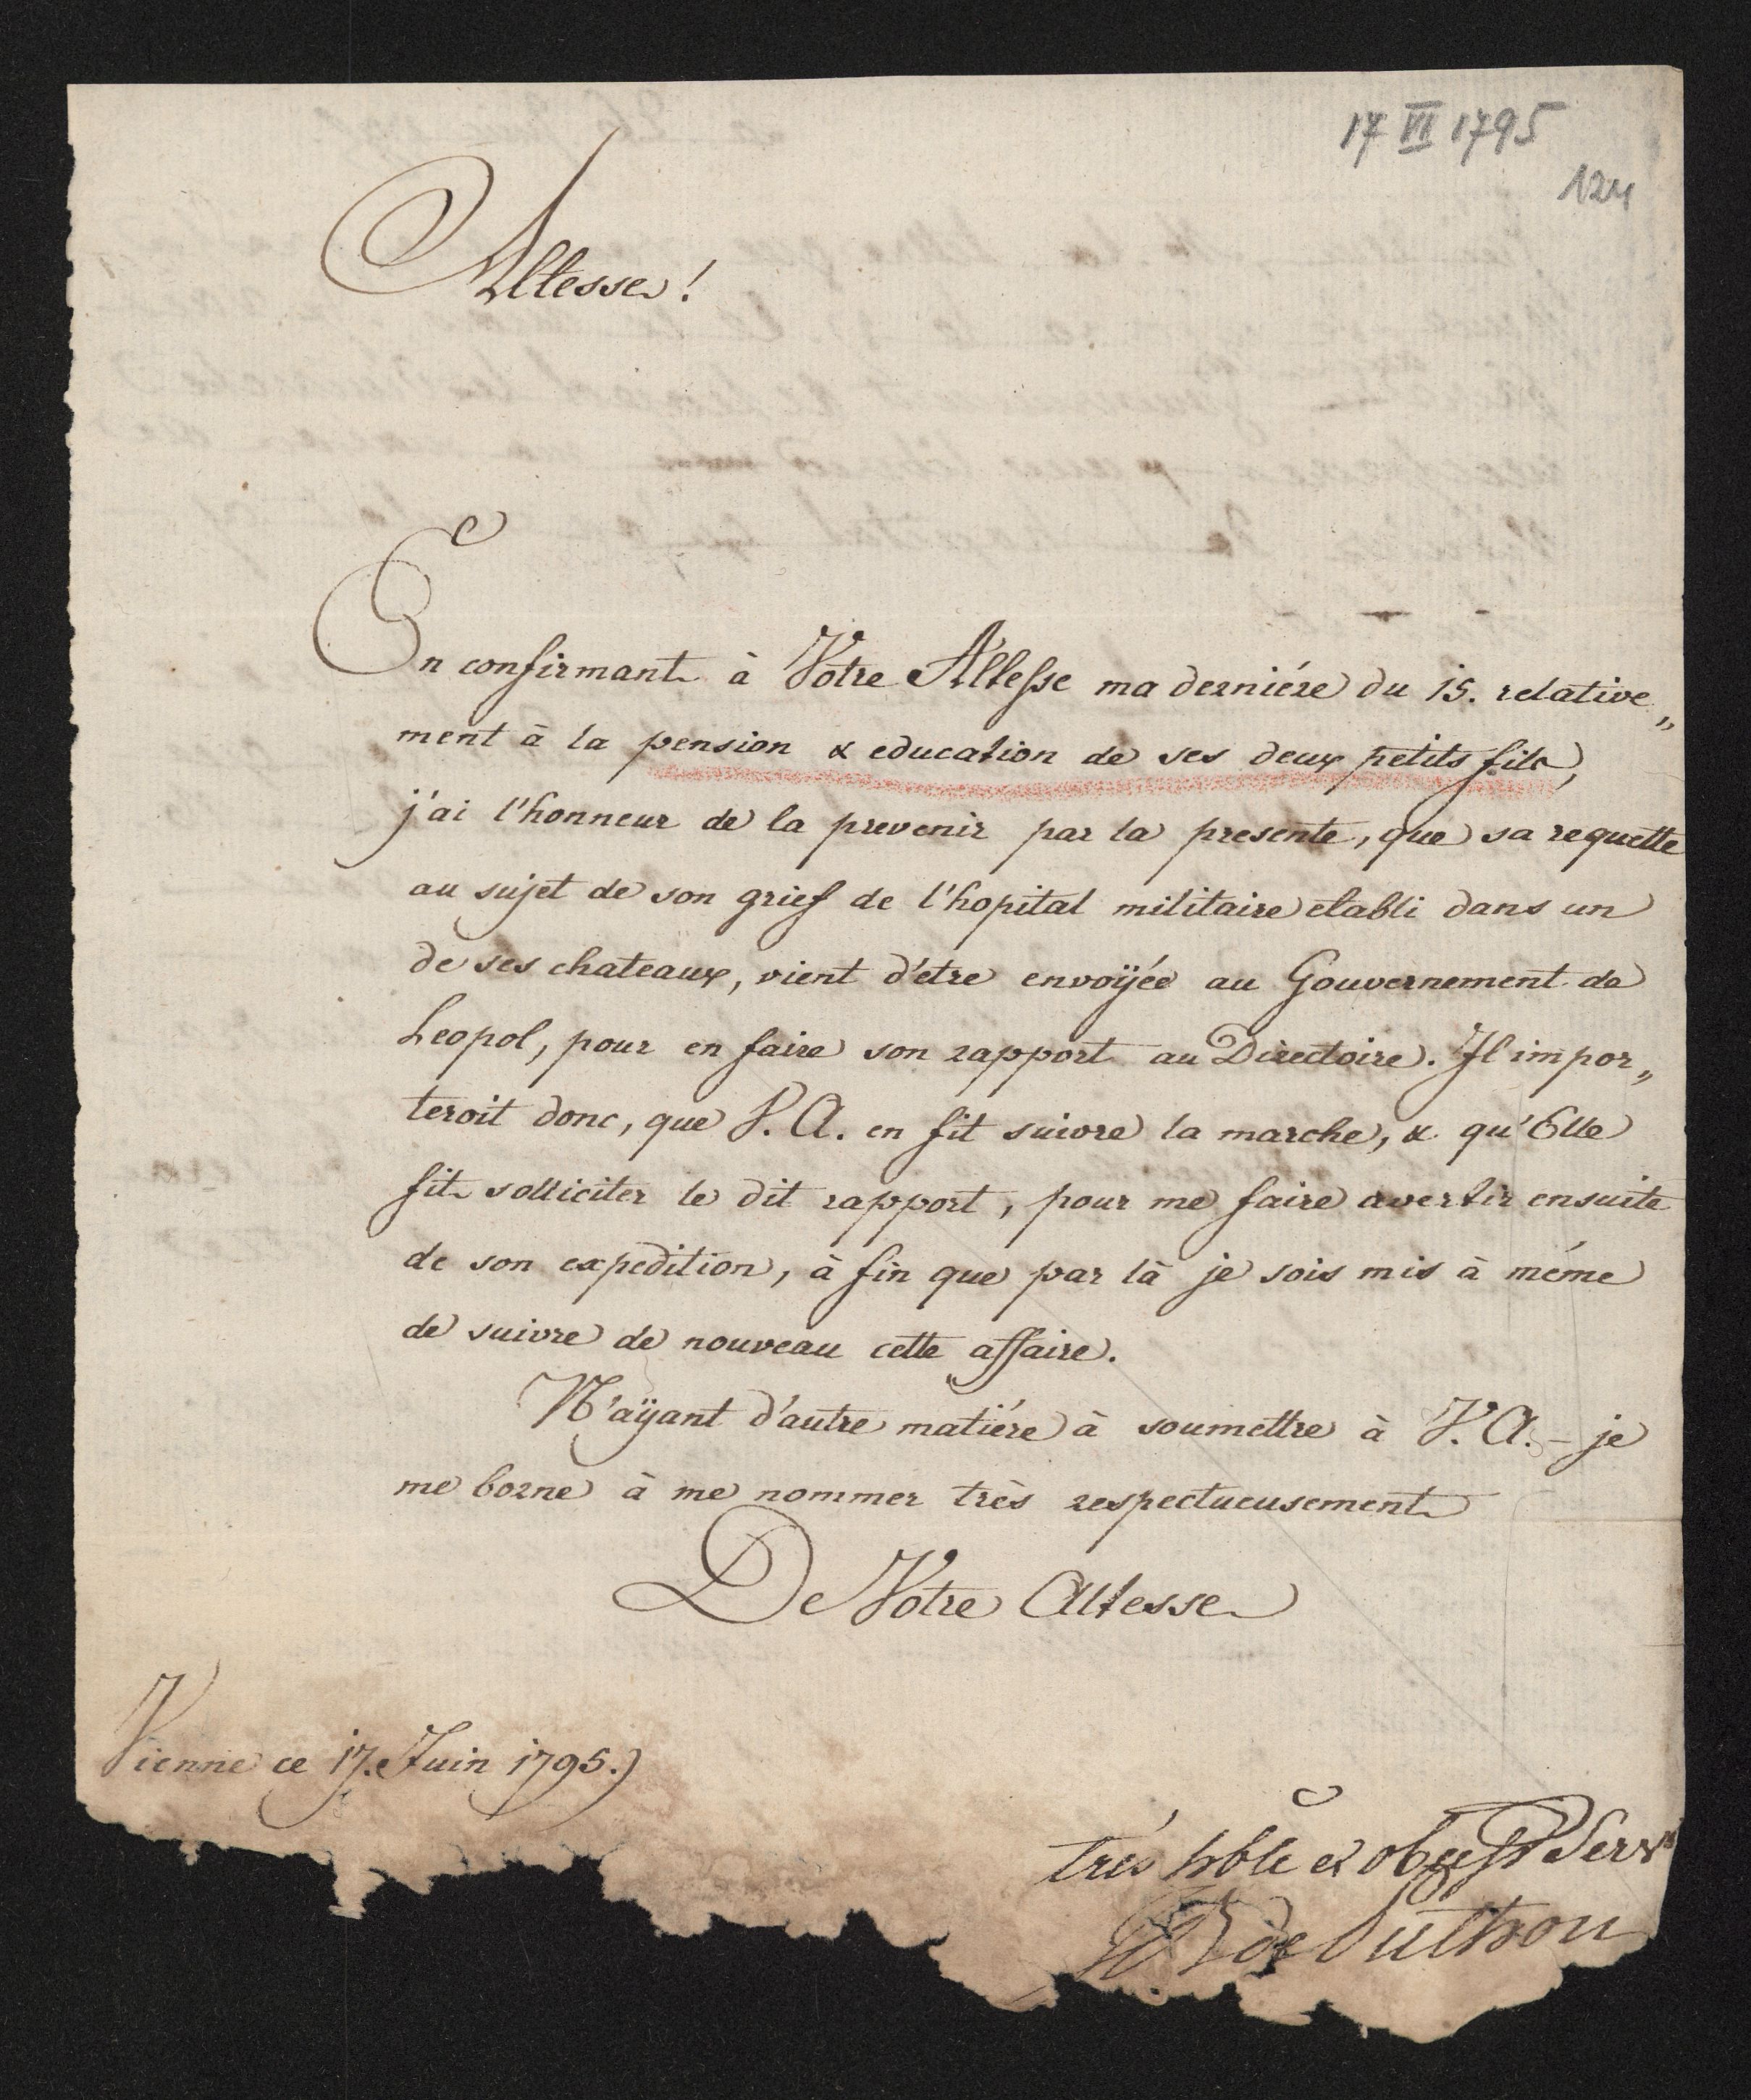 17 VI 1795
124
Altesse!
En confirmant à Votre Altesse ma derniére du 15. relative„
ment à la pension & education de ses deux petits fils,
j'ai l'honneur de la prevenir par la presente, que sa requette
au sujet de son grief de l'hopital militaire etabli dans un
de ses chateaux, vient d'étre envoÿée au Gouvernement de
Leopol, pour en faire son rapport au Directoire. Il impor„
teroit donc, que V. A. en fit suivre la marche, & qu'Elle
fit solliciter le dit rapport, pour me faire avertir ensuite
de son expedition, à fin que par là je sois mis à méme
de suivre de nouveau cette affaire.
N'aÿant d'autre matiére à soumettre à V. A. – je
me borne à me nommer très respectueusement
De Votre Altesse
Vienne ce 17. Juin 1795.
trés hble et Serv
de Puthon